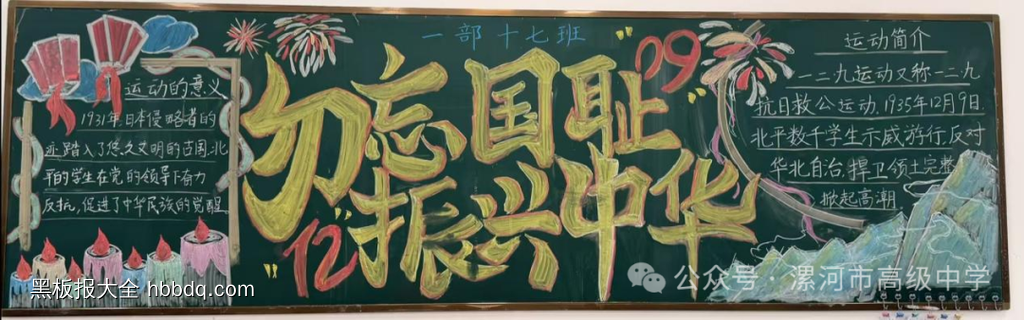 一部十七班
勿忘国耻
振兴中华
12
09
运动的意义
1931年,日本侵略者的
迹踏入了悠久文明的古国,北
平的学生在党的领导下奋力
反抗,促进了中华民族的觉醒
运动简介
一二九运动又称一二九
抗日救公运动,1935年12月9日,
北平数千学生示威游行,反对
华北自治,捍卫领土完整
掀起高潮
黑板报大全 hbbdq.com
公众号·漯河市高级中学